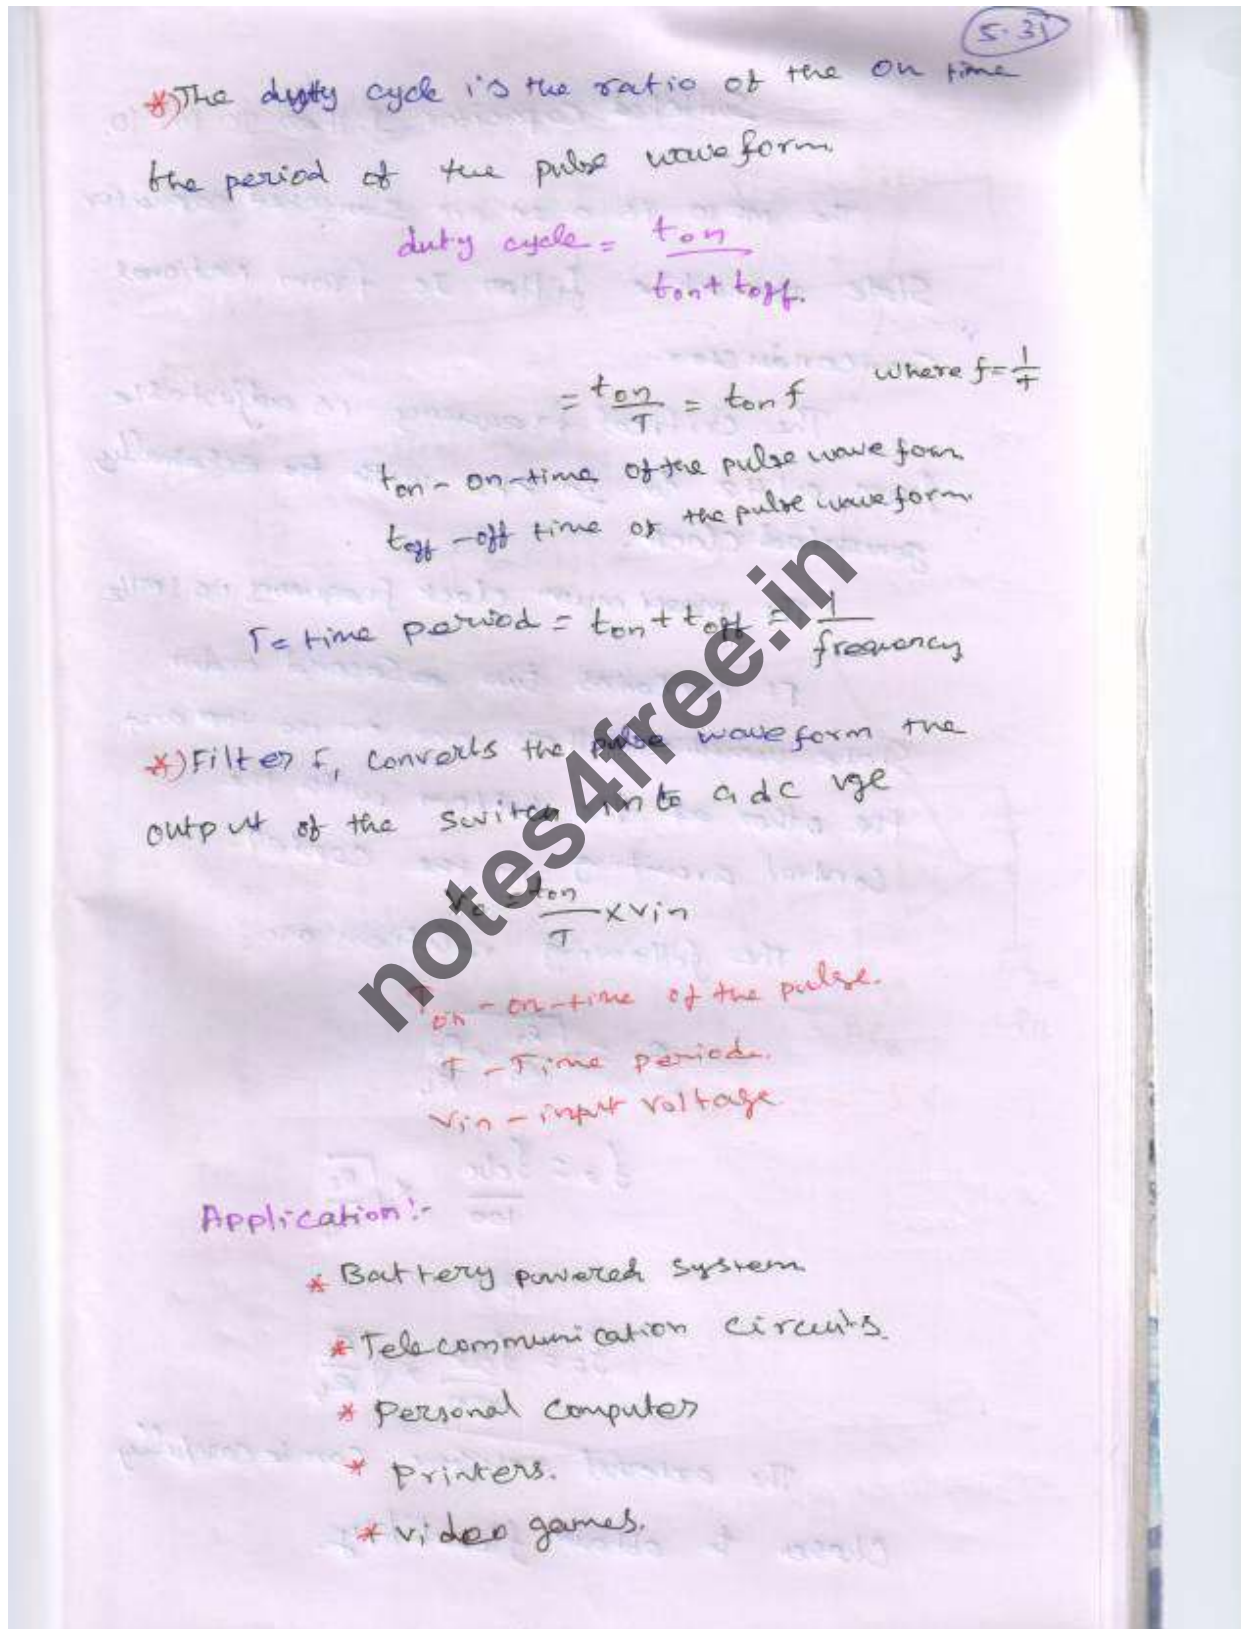 5.31
*) The duty cycle is the ratio of the on time
the period of the pulse waveform.
duty cycle = ton / ton + toff.
= ton / T = ton f where f = 1/T
ton - on-time of the pulse wave form
toff - off time of the pulse waveform.
T = time period = ton + toff = 1 / frequency
*) Filter F1 converts the pulse waveform the
output of the switch into a dc vge
Vo = ton / T x Vin
Ton - on-time of the pulse.
T - Time period.
Vin - input voltage
Application:-
* Battery powered system
* Telecommunication circuits.
* Personal computer
* Printers.
* Video games.
notes4free.in